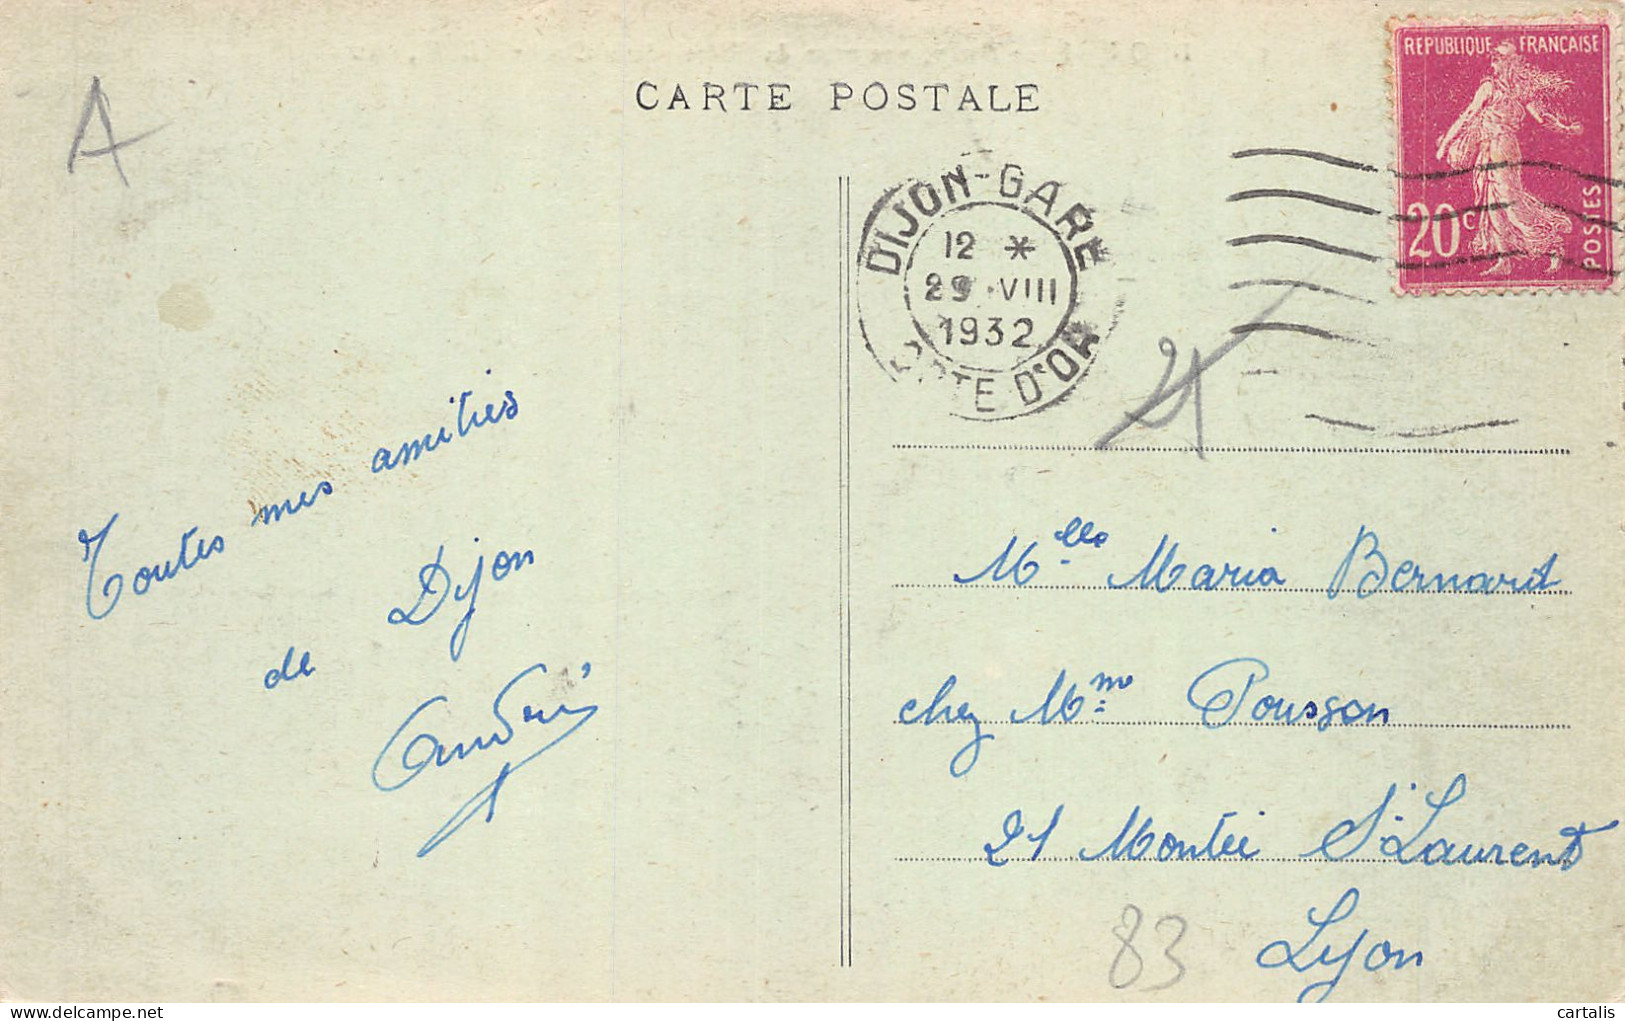 CARTE POSTALE
A
REPUBLIQUE FRANÇAISE
20c
POSTES
DIJON-GARE
12 *
29 · VIII
1932
CÔTE D'OR
Toutes mes amitiés
de Dijon
21
Mlle Maria Bernard
chez Mme Pousson
21 Montée St Laurent
Lyon
83
cartalis
delcampe.net